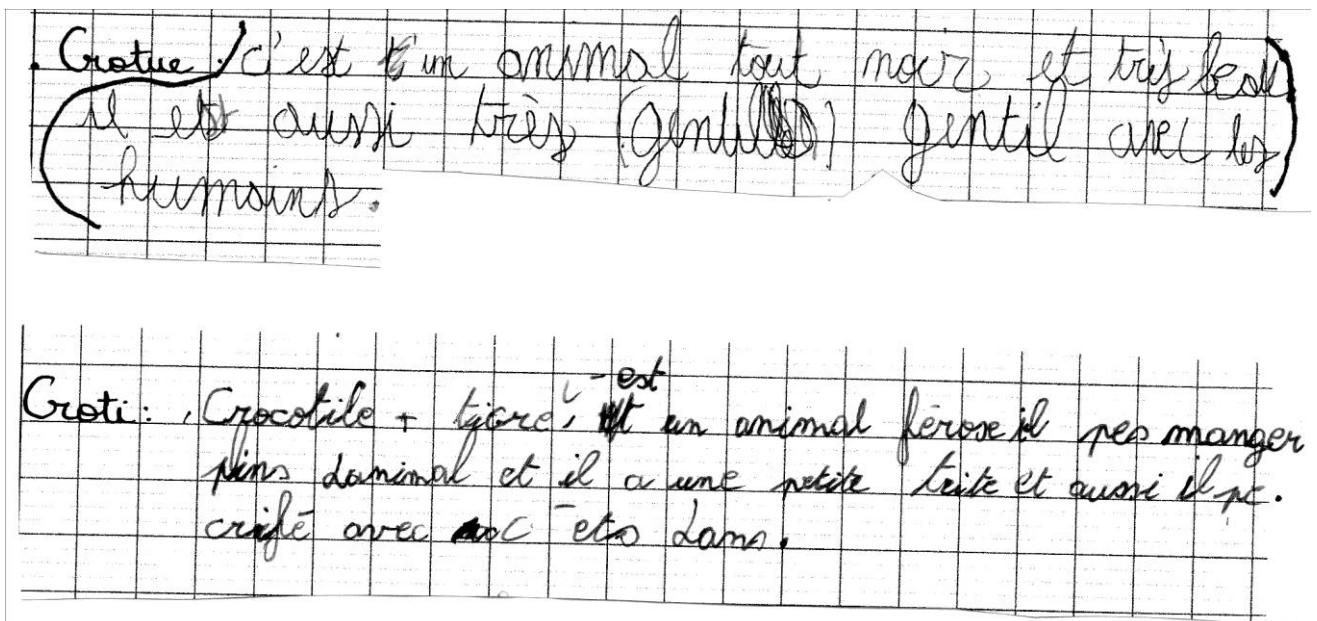 . Crotue : c'est un animal tout noir et très beau
il est aussi très (gentille) gentil avec les
humains.
Croti : Crocotile + tigre, c-est un animal férose il peo manger
plins danimal et il a une petite teite et aussi il pe.
crifé avec c ets dans.